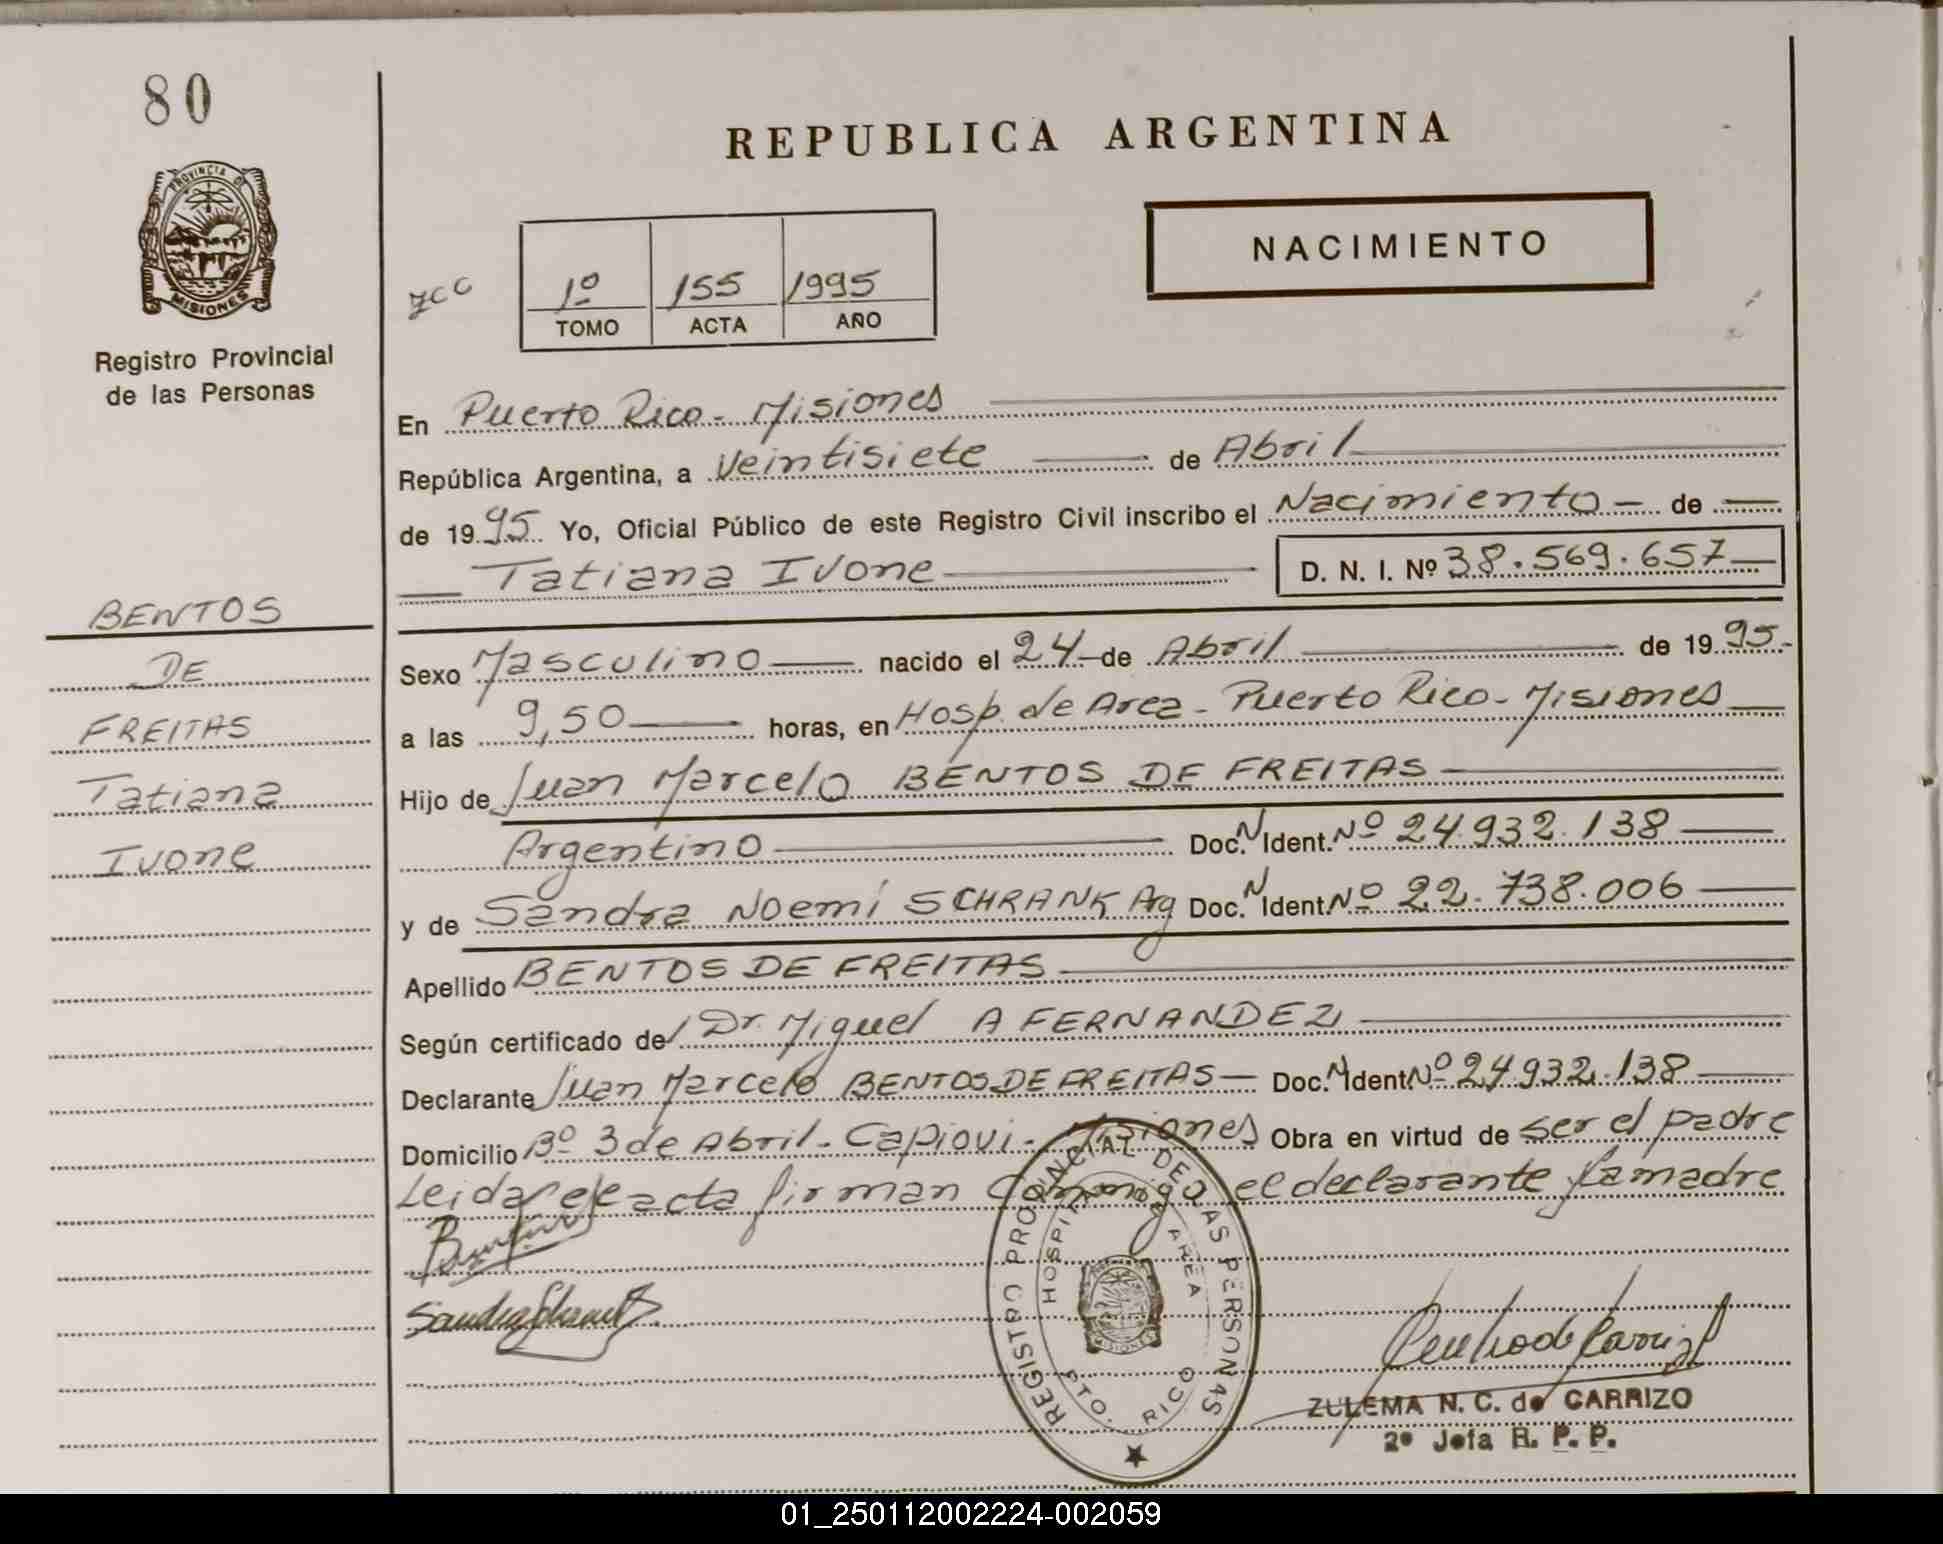 80
PROVINCIA DE
MISIONES
Registro Provincial
de las Personas
BENTOS
DE
FREITAS
Tatiana
Ivone
REPUBLICA ARGENTINA
NACIMIENTO
1º 155 1995
TOMO ACTA AÑO
En Puerto Rico - Misiones
República Argentina, a Veintisiete de Abril
de 1995. Yo, Oficial Público de este Registro Civil inscribo el Nacimiento - de
Tatiana Ivone D. N. I. Nº 38.569.657
Sexo Masculino nacido el 24 de Abril de 1995.-
a las 9,50 horas, en Hosp. de Area - Puerto Rico - Misiones
Hijo de Juan Marcelo BENTOS DE FREITAS
Argentino Doc. N. Ident. Nº 24.932.138
y de Sandra Noemí SCHRANK Arg Doc. N. Ident. Nº 22.738.006
Apellido BENTOS DE FREITAS
Según certificado del Dr. Miguel A FERNANDEZ
Declarante Juan Marcelo BENTOS DE FREITAS - Doc. N. Ident. Nº 24.932.138
Domicilio Bº 3 de Abril - Capiovi - Misiones Obra en virtud de ser el padre
Leida el acta firman Conmigo el declarante y la madre
REGISTRO PROVINCIAL DE LAS PERSONAS
HOSPITAL DE AREA
PTO. RICO
MISIONES
ZULEMA N. C. de CARRIZO
2º Jefa R. P. P.
01_250112002224-002059